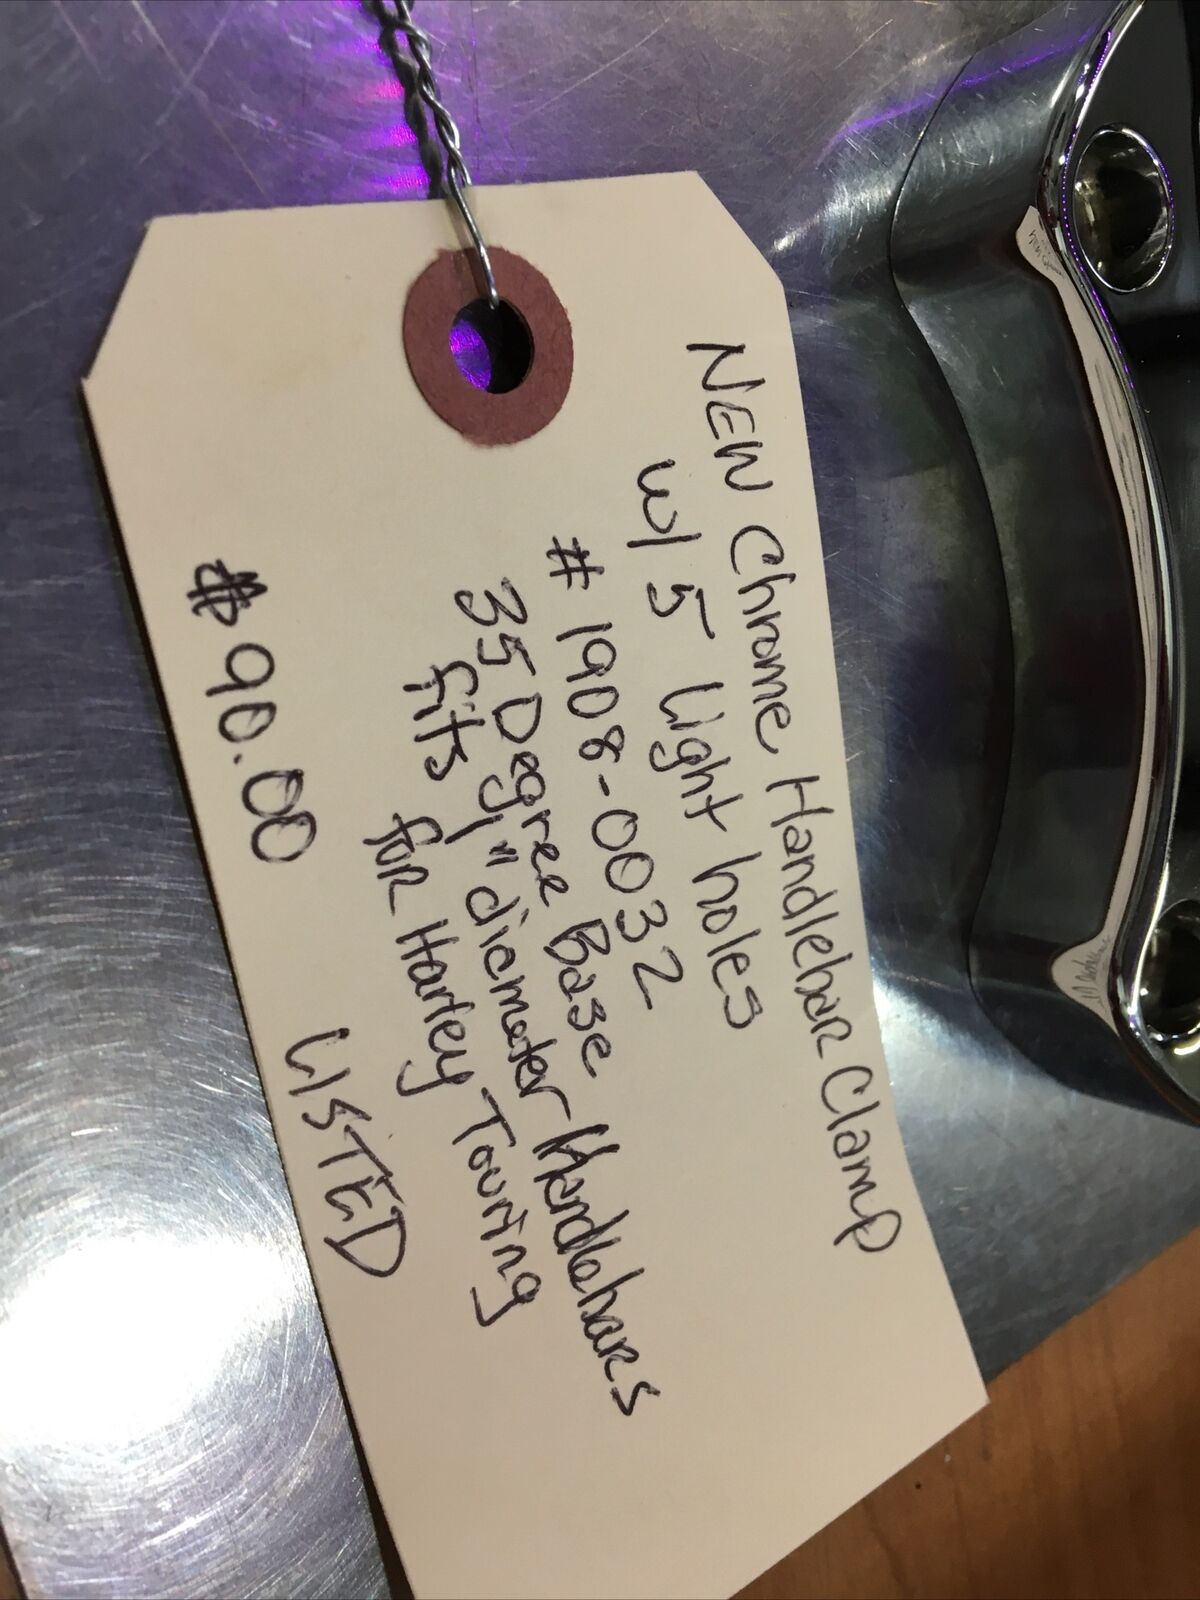 NEW Chrome Handlebar Clamp
w/ 5 Light holes
# 1908-0032
35 Degree Base
fits 1" diameter Handlebars
for Harley Touring
$90.00
LISTED